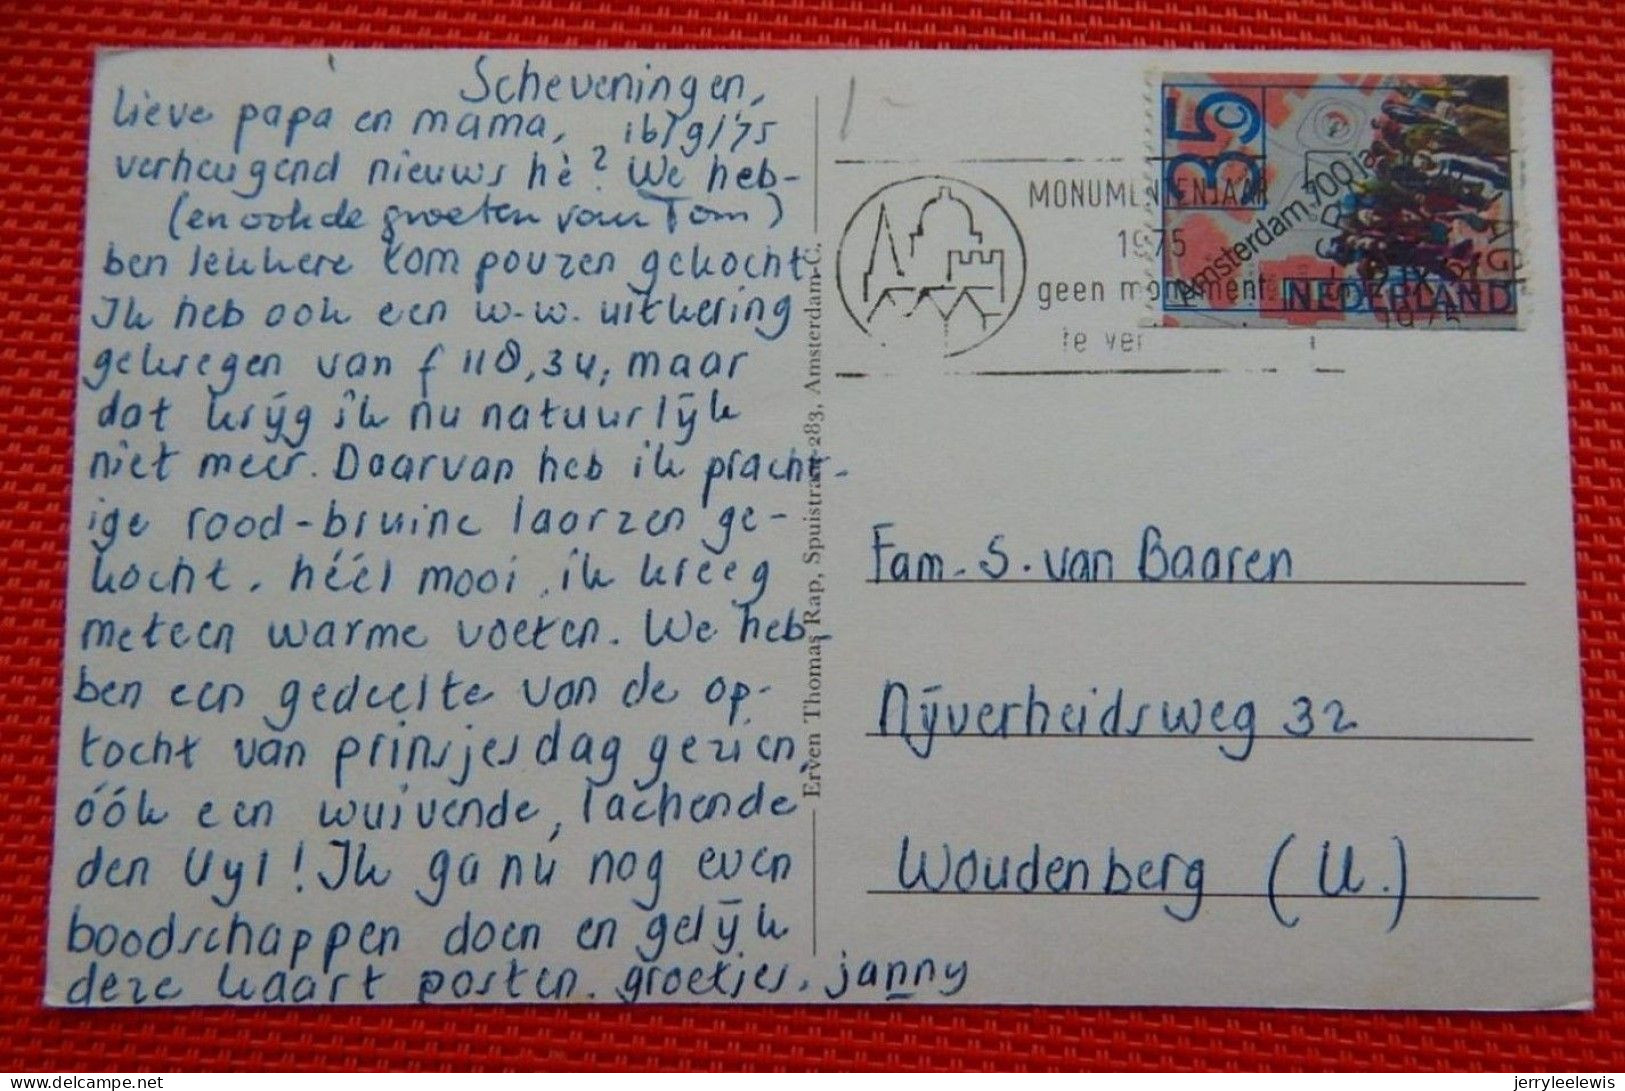 Scheveningen,
lieve papa en mama, 16/9/'75
verheugend nieuws hè? We heb-
(en ook de groeten van Tom)
ben lekkere tom pouzen gekocht
Ik heb ook een w.w. uitkering
gekregen van f 118,34, maar
dat krijg ik nu natuurlijk
niet meer. Daarvan heb ik pracht-
ige rood-bruine laarzen ge-
kocht. héél mooi, ik kreeg
meteen warme voeten. We heb-
ben een gedeelte van de op-
tocht van prinsjesdag gezien,
óók een wuivende, lachende
den Uyl! Ik ga nú nog even
boodschappen doen en gelijk
deze kaart posten. groetjes. janny
Erven Thomas Rap, Spuistraat 283, Amsterdam-C.
MONUMENTENJAAR
1975
geen monument
te ver
35c
Amsterdam 700 jaar
NEDERLAND
Fam. S. van Baaren
Nijverheidsweg 32
Woudenberg (U.)
jerryleelewis